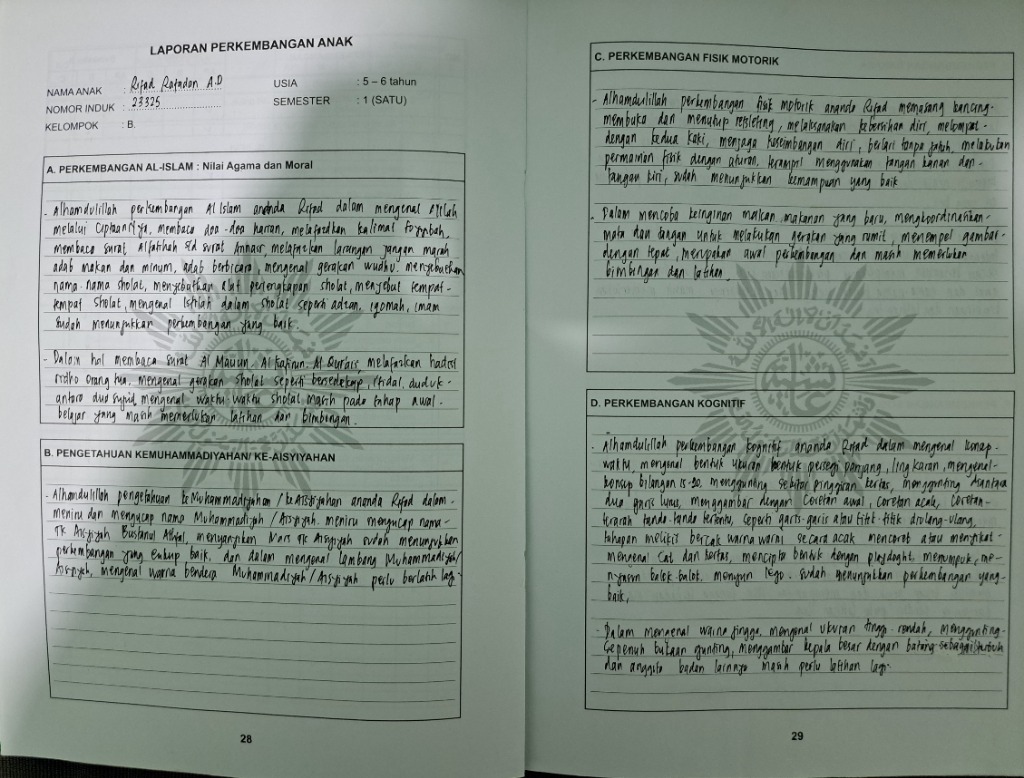 LAPORAN PERKEMBANGAN ANAK
NAMA ANAK : Rifad Ramadan A.D
NOMOR INDUK : 23325
KELOMPOK : B.
USIA : 5 – 6 tahun
SEMESTER : 1 (SATU)
A. PERKEMBANGAN AL-ISLAM : Nilai Agama dan Moral
- Alhamdulillah perkembangan Al Islam ananda Rifad dalam mengenal
melalui CiptaanNya, membaca doa-doa harian, melafadkan kalimat toyyibah,
membaca surat Alfatihah s/d surat Annasr, melafazkan larangan jangan marah
adab makan dan minum, adab berbicara, mengenal gerakan wudhu, menyebutkan
nama-nama sholat, menyebutkan alat perlengkapan sholat, menyebut tempat-
tempat sholat, mengenal Istilah dalam sholat seperti adzan, iqomah, imam
sudah menunjukkan perkembangan yang baik.
- Dalam hal membaca surat Al Mauun, Al Kafirun, Al Quraisy, melafazkan hadist
ridho orang tua, mengenal gerakan sholat seperti bersedekap, itidal, duduk-
antara dua sujud, mengenal waktu-waktu sholat masih pada tahap awal-
belajar yang masih memerlukan latihan dan bimbingan.
B. PENGETAHUAN KEMUHAMMADIYAHAN/ KE-AISYIYAHAN
- Alhamdulillah pengetahuan keMuhammadiyahan / keAisyiyahan ananda Rifad dalam-
meniru dan mengucap nama Muhammadiyah / Aisyiyah. meniru mengucap nama-
TK Aisyiyah Bustanul Athfal, menyanyikan Mars TK Aisyiyah sudah menunjukkan
perkembangan yang cukup baik, dan dalam mengenal lambang Muhammadiyah/
Aisyiyah, mengenal warna bendera Muhammadiyah/Aisyiyah perlu berlatih lagi-
28
C. PERKEMBANGAN FISIK MOTORIK
- Alhamdulillah perkembangan fisik motorik ananda Rifad memasang kancing-
membuka dan menutup resleting, melaksanakan kebersihan diri, melompat-
dengan kedua kaki, menjaga keseimbangan diri, berlari tanpa jatuh, melakukan
permainan fisik dengan aturan, terampil menggunakan tangan kanan dan-
tangan kiri, sudah menunjukkan kemampuan yang baik
- Dalam mencoba keinginan makan makanan yang baru, mengkoordinasikan-
mata dan tangan untuk melakukan gerakan yang rumit, menempel gambar-
dengan tepat, merupakan awal perkembangan dan masih memerlukan
bimbingan dan latihan
D. PERKEMBANGAN KOGNITIF
- Alhamdulillah perkembangan kognitif ananda Rifad dalam mengenal konsep-
waktu, mengenal bentuk ukuran bentuk persegi panjang, lingkaran, mengenal-
konsep bilangan 15-20, menggunting sekitar pinggiran kertas, menggunting diantara
dua garis lurus, menggambar dengan coretan awal, coretan acak, coretan-
terarah tanda-tanda tertentu, seperti garis-garis atau titik-titik diulang-ulang,
tahapan melukis bercak warna warni secara acak mencoret atau menyikat-
mengenal cat dan kertas, mencipta bentuk dengan playdought, menumpuk, me-
nyusun balok-balok, menyusun lego. sudah menunjukkan perkembangan yang-
baik,
- Dalam mengenal warna jingga, mengenal ukuran tinggi-rendah, menggunting-
sepenuh bukaan gunting, menggambar kepala besar dengan batang sebagai tubuh
dan anggota badan lainnya masih perlu latihan lagi-
29